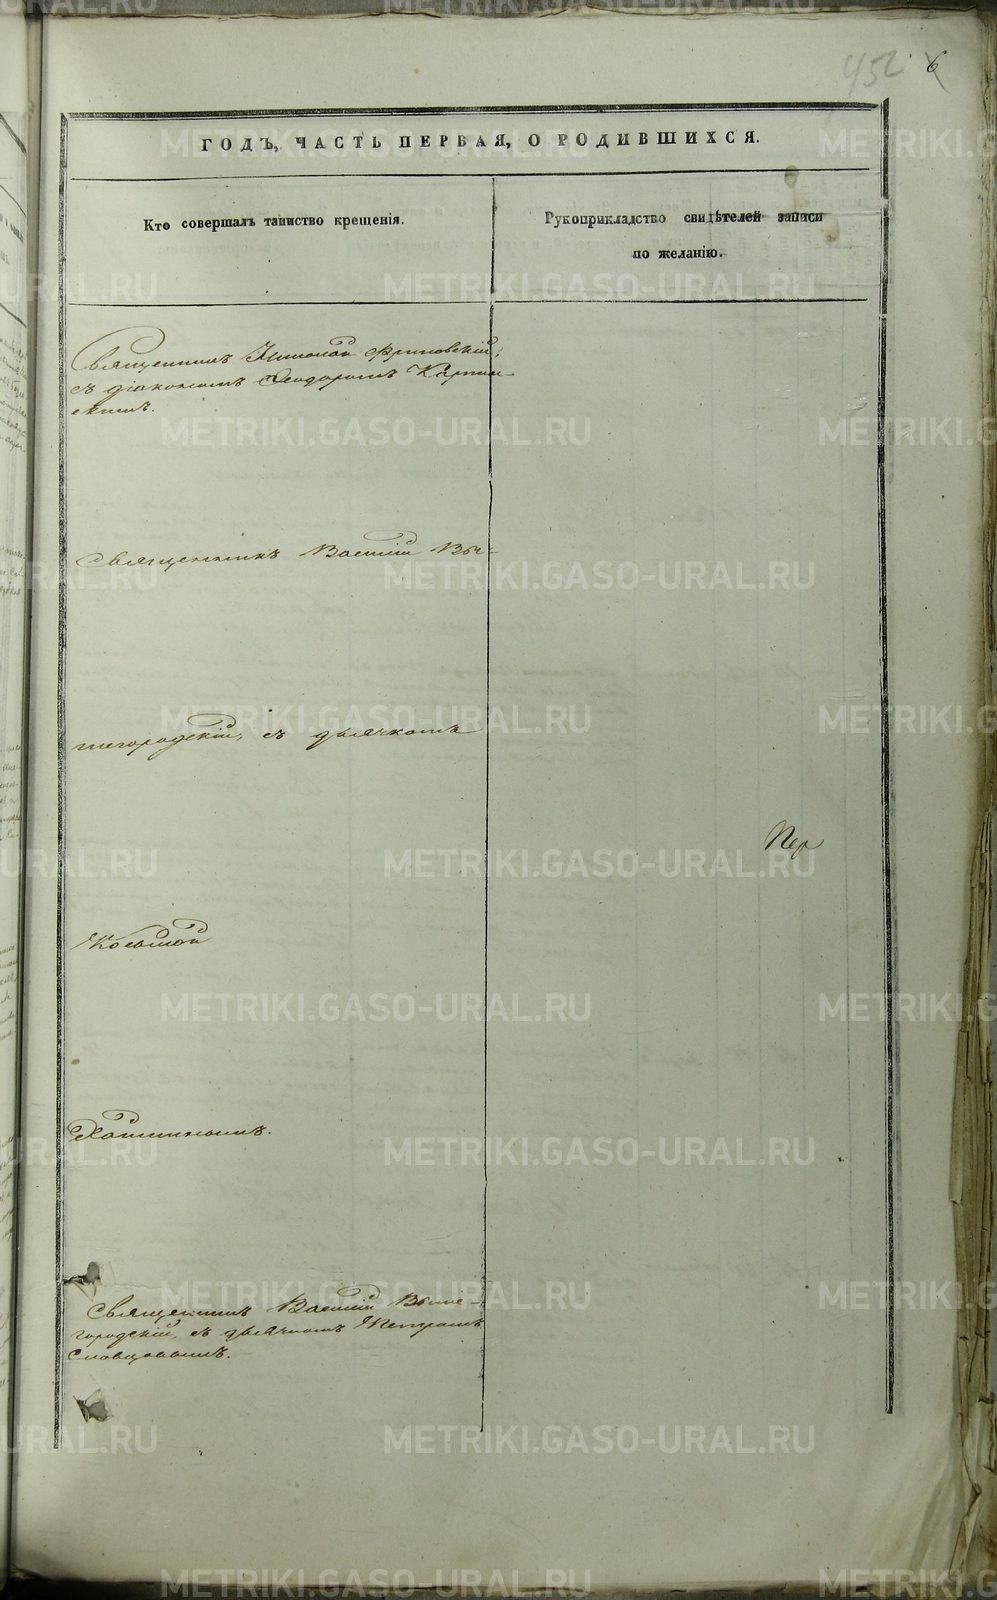 452 6
ГОДЪ, ЧАСТЬ ПЕРВАЯ, О РОДИВШИХСЯ.
Кто совершалъ таинство крещенія.
Рукоприкладство свидѣтелей записи
по желанію.
Священникъ Николай
съ діакономъ Феодоромъ Карпин-
скимъ.
Священникъ Василій Вы-
шегородскій, съ дьячкомъ
Пер
Козьмой
Священникъ Василій Выше-
городскій, съ дьячкомъ Петромъ
Словцовымъ.
METRIKI.GASO-URAL.RU